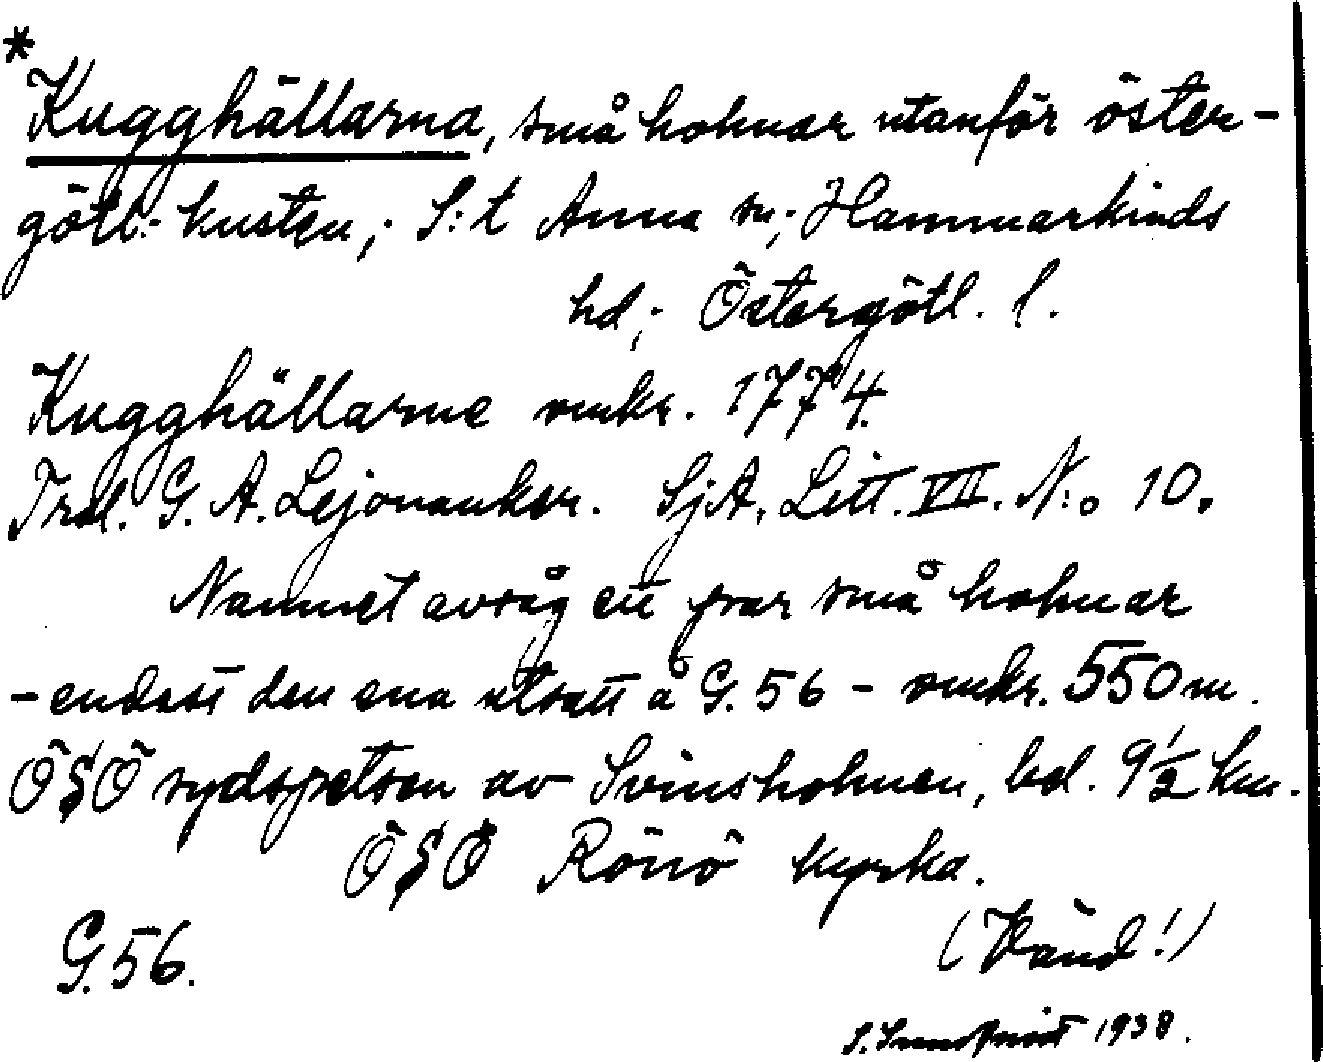 *
Kugghällarna, små holmar utanför öster-
götl:-kusten,; S:t Anna sn; Hammarkinds
hd,; Östergötl. l.
Kugghällarne omkr. 1774.
Trol. G. A. Lejonanker. SjA, Litt. VII. N:o 10.
Namnet avsåg ett par små holmar
- endast den ena utsatt å G. 56 - omkr. 550 m.
ÖSÖ sydspetsen av Svinsholmen, bel. 9½ km.
ÖSÖ Rönö kyrka.
(Vänd!)
G. 56.
S. 1938.